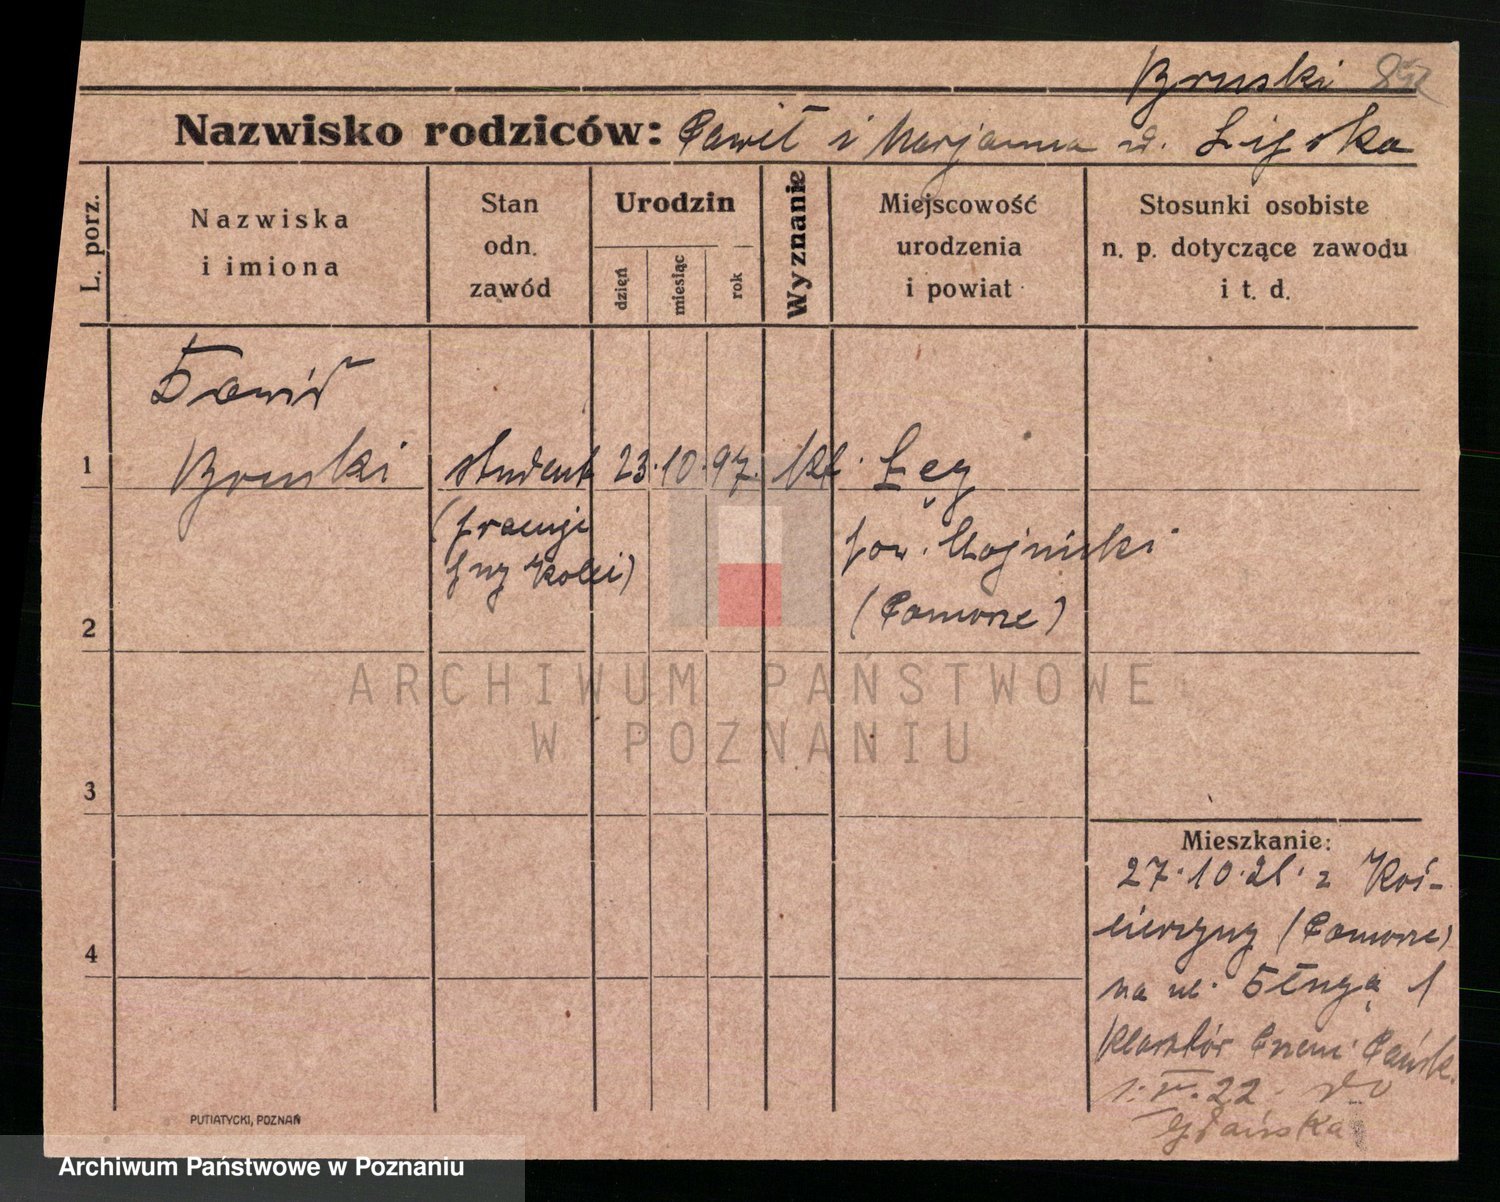 Bruski
Nazwisko rodziców: Paweł i Marjanna
L. porz.
Nazwiska
i imiona
Stan
odn.
zawód
Urodzin
dzień
miesiąc
rok
Wyznanie
Miejscowość
urodzenia
i powiat
Stosunki osobiste
n. p. dotyczące zawodu
i t. d.
Dawid
1 Bruski student 23. 10. 97. kat. Łęg
(pracuje
przy kolei)
pow. Chojnicki
(Pomorze)
2
3
4
Mieszkanie:
27.10.21. z Koś-
cierzyny (Pomorze)
na ul. Długą 1
Klasztór Przem. Pańsk.
1.V.22. do
Gdańska
PUTIATYCKI, POZNAŃ
ARCHIWUM PAŃSTWOWE
W POZNANIU
Archiwum Państwowe w Poznaniu